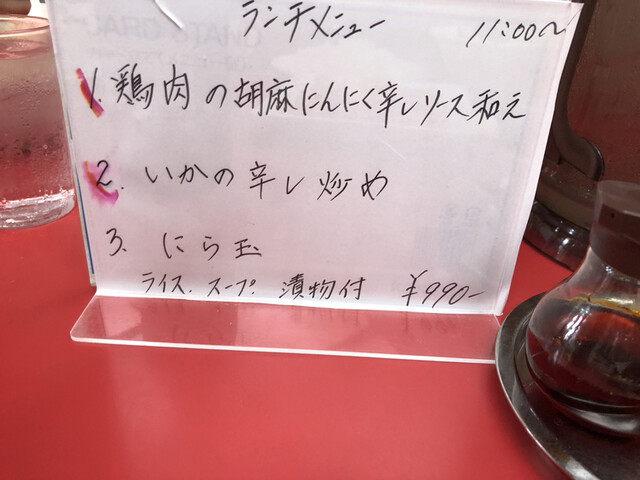 ランチメニュー 11:00〜
1. 鶏肉の胡麻にんにく辛しソース和え
2. いかの辛し炒め
3. にら玉
ライス、スープ、漬物付 ¥990-